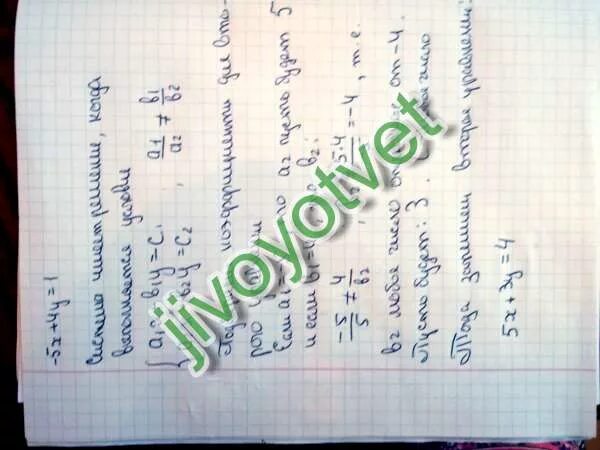 -5x+4y=1
Система имеет решение, когда
выполняется условие
{ a₁x + b₁y = c₁ , a₁/a₂ ≠ b₁/b₂
b₂y = c₂
коэффициенты для вто-
рого
Если a₂ пусть будет 5
и если b₁ = b₂:
-5/5 ≠ 4/b₂ , 5·4 = -4, т.е.
b₂ любое число от -4.
Пусть будет: 3. число
Тогда запишем второе уравнение:
5x+3y=4
jivoyotvet